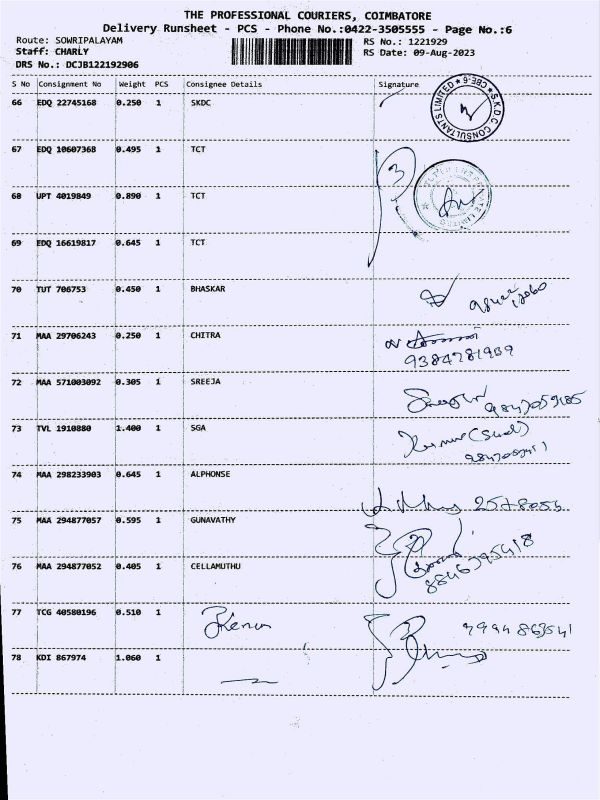 THE PROFESSIONAL COURIERS, COIMBATORE
Delivery Runsheet - PCS - Phone No.:0422-3505555 - Page No.:6
Route: SOWRIPALAYAM RS No.: 1221929
Staff: CHARLY RS Date: 09-Aug-2023
DRS No.: DCJB122192906
S No Consignment No Weight PCS Consignee Details Signature
66 EDQ 22745168 0.250 1 SKDC
S.K.D.C CONSULTANTS LIMITED * CBE-6 *
67 EDQ 10607368 0.495 1 TCT
68 UPT 4019849 0.890 1 TCT
69 EDQ 16619817 0.645 1 TCT
70 TUT 706753 0.450 1 BHASKAR
71 MAA 29706243 0.250 1 CHITRA
9384781939
72 MAA 571003092 0.305 1 SREEJA
73 TVL 1910880 1.400 1 SGA
74 MAA 298233903 0.645 1 ALPHONSE
75 MAA 294877057 0.595 1 GUNAVATHY
76 MAA 294877052 0.405 1 CELLAMUTHU
77 TCG 40580196 0.510 1
78 KDI 867974 1.060 1